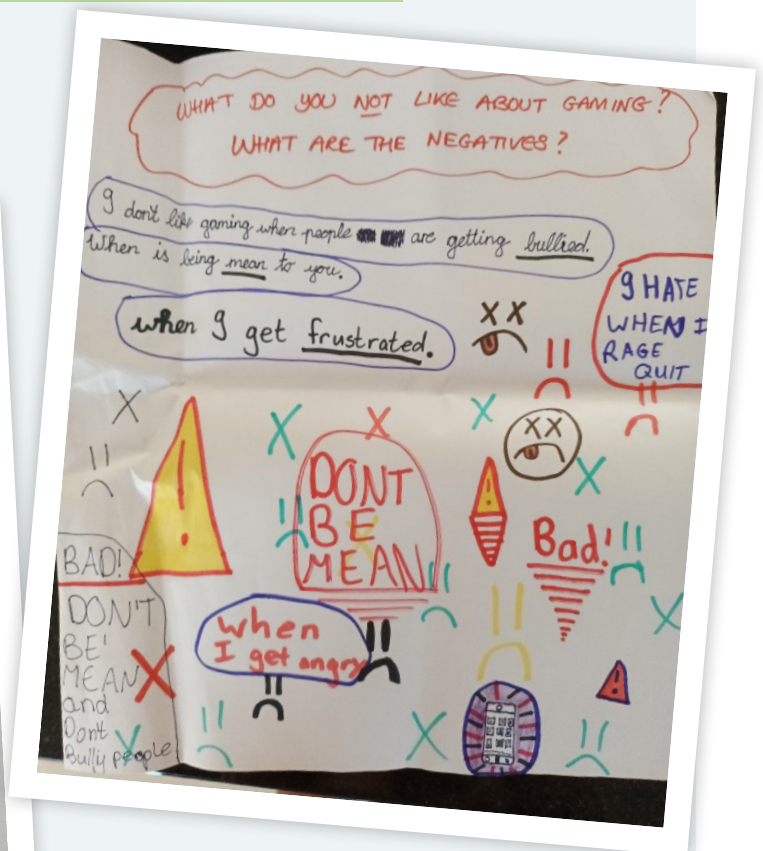 WHAT DO YOU NOT LIKE ABOUT GAMING?
WHAT ARE THE NEGATIVES?
I don't like gaming when people are getting bullied.
When is being mean to you.
when I get frustrated.
I HATE
WHEN I
RAGE
QUIT
DONT
BE
MEAN
Bad!
BAD!
DON'T
BE'
MEAN
and
Dont
Bully people
when
I get angry